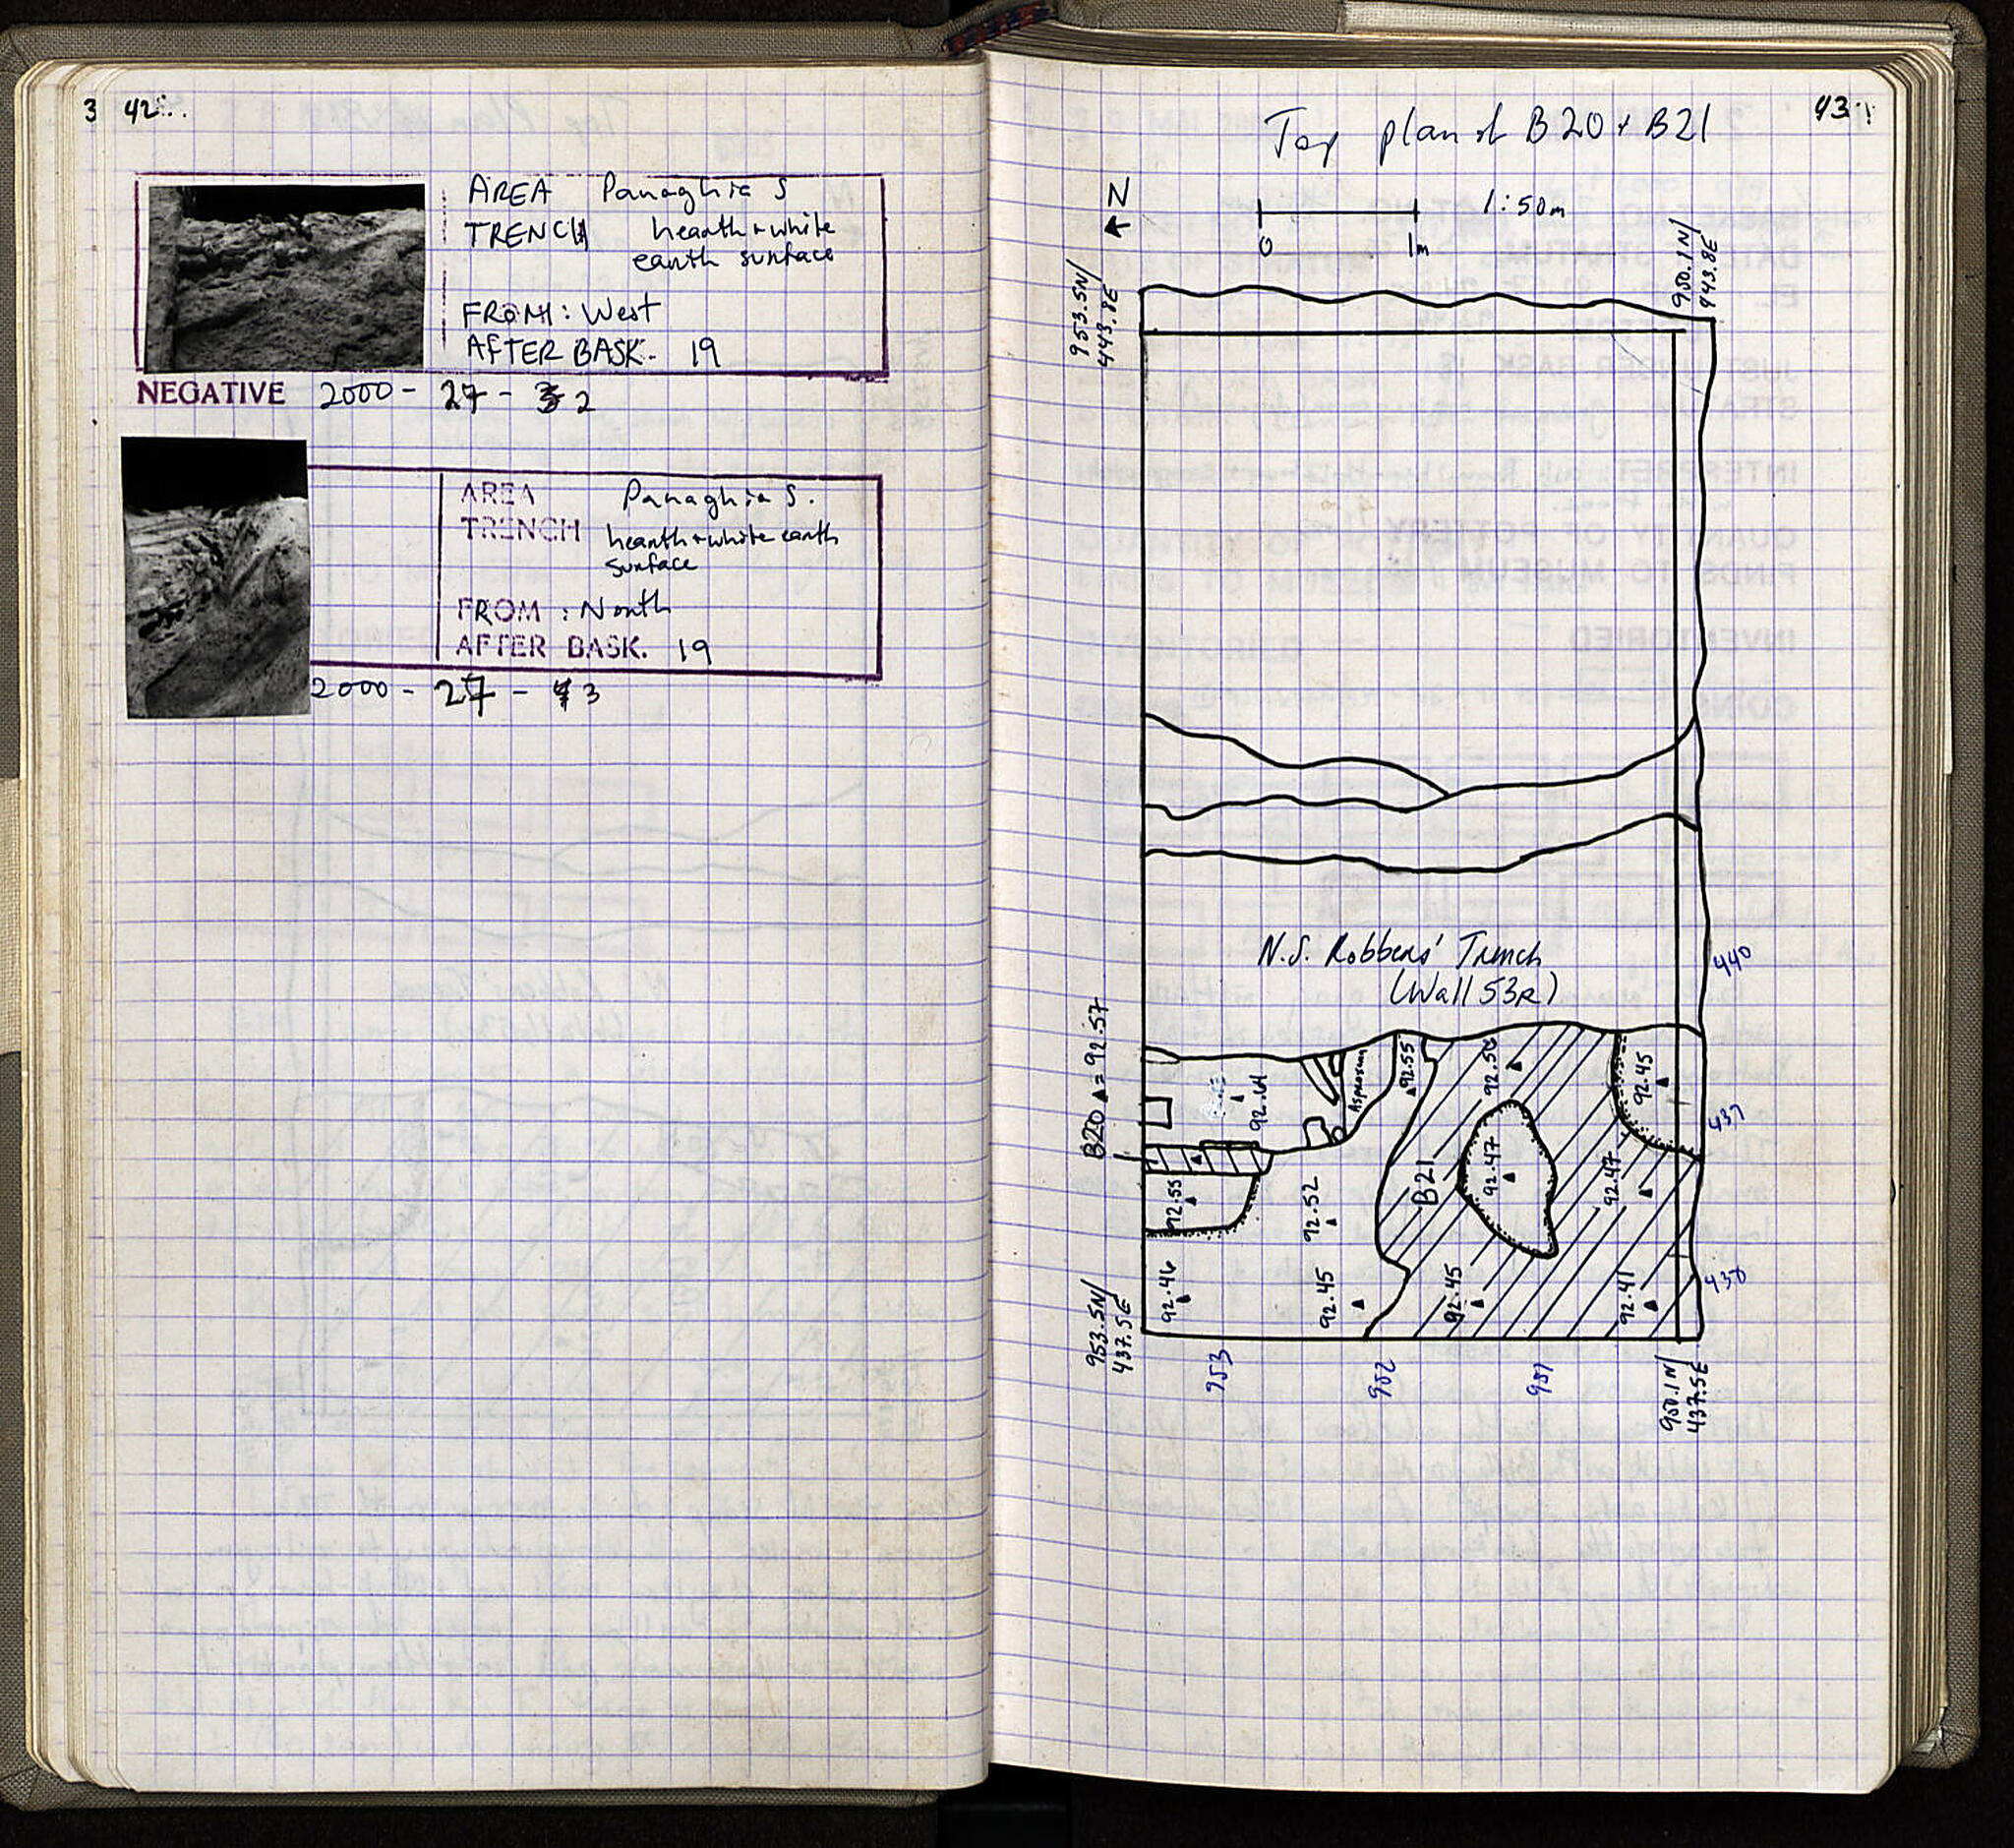 3 42
AREA Panaghia S
TRENCH hearth + white
earth surface
FROM: West
AFTER BASK. 19
NEGATIVE 2000 - 27 - 2
AREA Panaghia S.
TRENCH hearth + white earth
surface
FROM: North
AFTER BASK. 19
2000 - 27 - 3
43
Top plan of B20 + B21
N
1:50m
0 1m
953.5N/
443.8E
950.1N/
443.8E
N.S. Robbers' Trench
(Wall 53R)
440
B20 ▲ = 92.57
92.64
Asparagus
92.55
92.45
92.55
92.52
B21
92.47
92.47
92.46
92.45
92.45
92.41
953.5N/
437.5E
953
952
951
950.1N/
437.5E